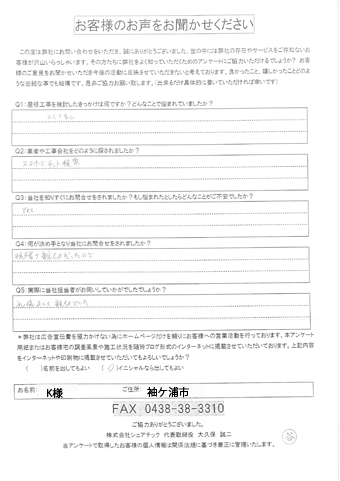 お客様のお声をお聞かせください
この度は弊社にお問い合わせをいただき、誠にありがとうございました。世の中には弊社の存在やサービスをご存知ないお
客様が沢山いらっしゃいます。その方たちに弊社をよく知っていただくためのアンケートにご協力いただけるでしょうか?お客
様のご意見をお聞かせいただき今後の活動に反映させていただきたいと考えております。良かったこと、嬉しかったことどのよ
うな些細な事でも結構です。是非ご協力お願い致します。(出来るだけ具体的に書いていただければ幸いです)
Q1:屋根工事を検討したきっかけは何ですか?どんなことで悩まれていましたか?
Q2:業者や工事会社をどのように探されましたか?
スマホでネット検索
Q3:当社を知りすぐにお問合せをされましたか?もし悩まれたとしたらどんなことがご不安でしたか?
Yes
Q4:何が決め手となり当社にお問合せをされましたか?
Q5:実際に当社担当者がお伺いしていかがでしたでしょうか?
礼儀正しく親切でした
*弊社は広告宣伝費を極力かけない為にホームページだけを頼りにお客様への営業活動を行っております。本アンケート
用紙またはお客様宅の調査風景や施工状況を随時ブログ形式のインターネットに掲載させていただいております。上記内容
をインターネットや印刷物に掲載させていただいてもよろしいでしょうか?
( )名前を出してもよい (○)イニシャルなら出してもよい
お名前: K様 ご住所: 袖ケ浦市
FAX 0438-38-3310
ご協力ありがとうございました。
株式会社シェアテック 代表取締役 大久保 誠二
当アンケートで取得したお客様の個人情報は関係法規に基づき厳正に管理いたします。